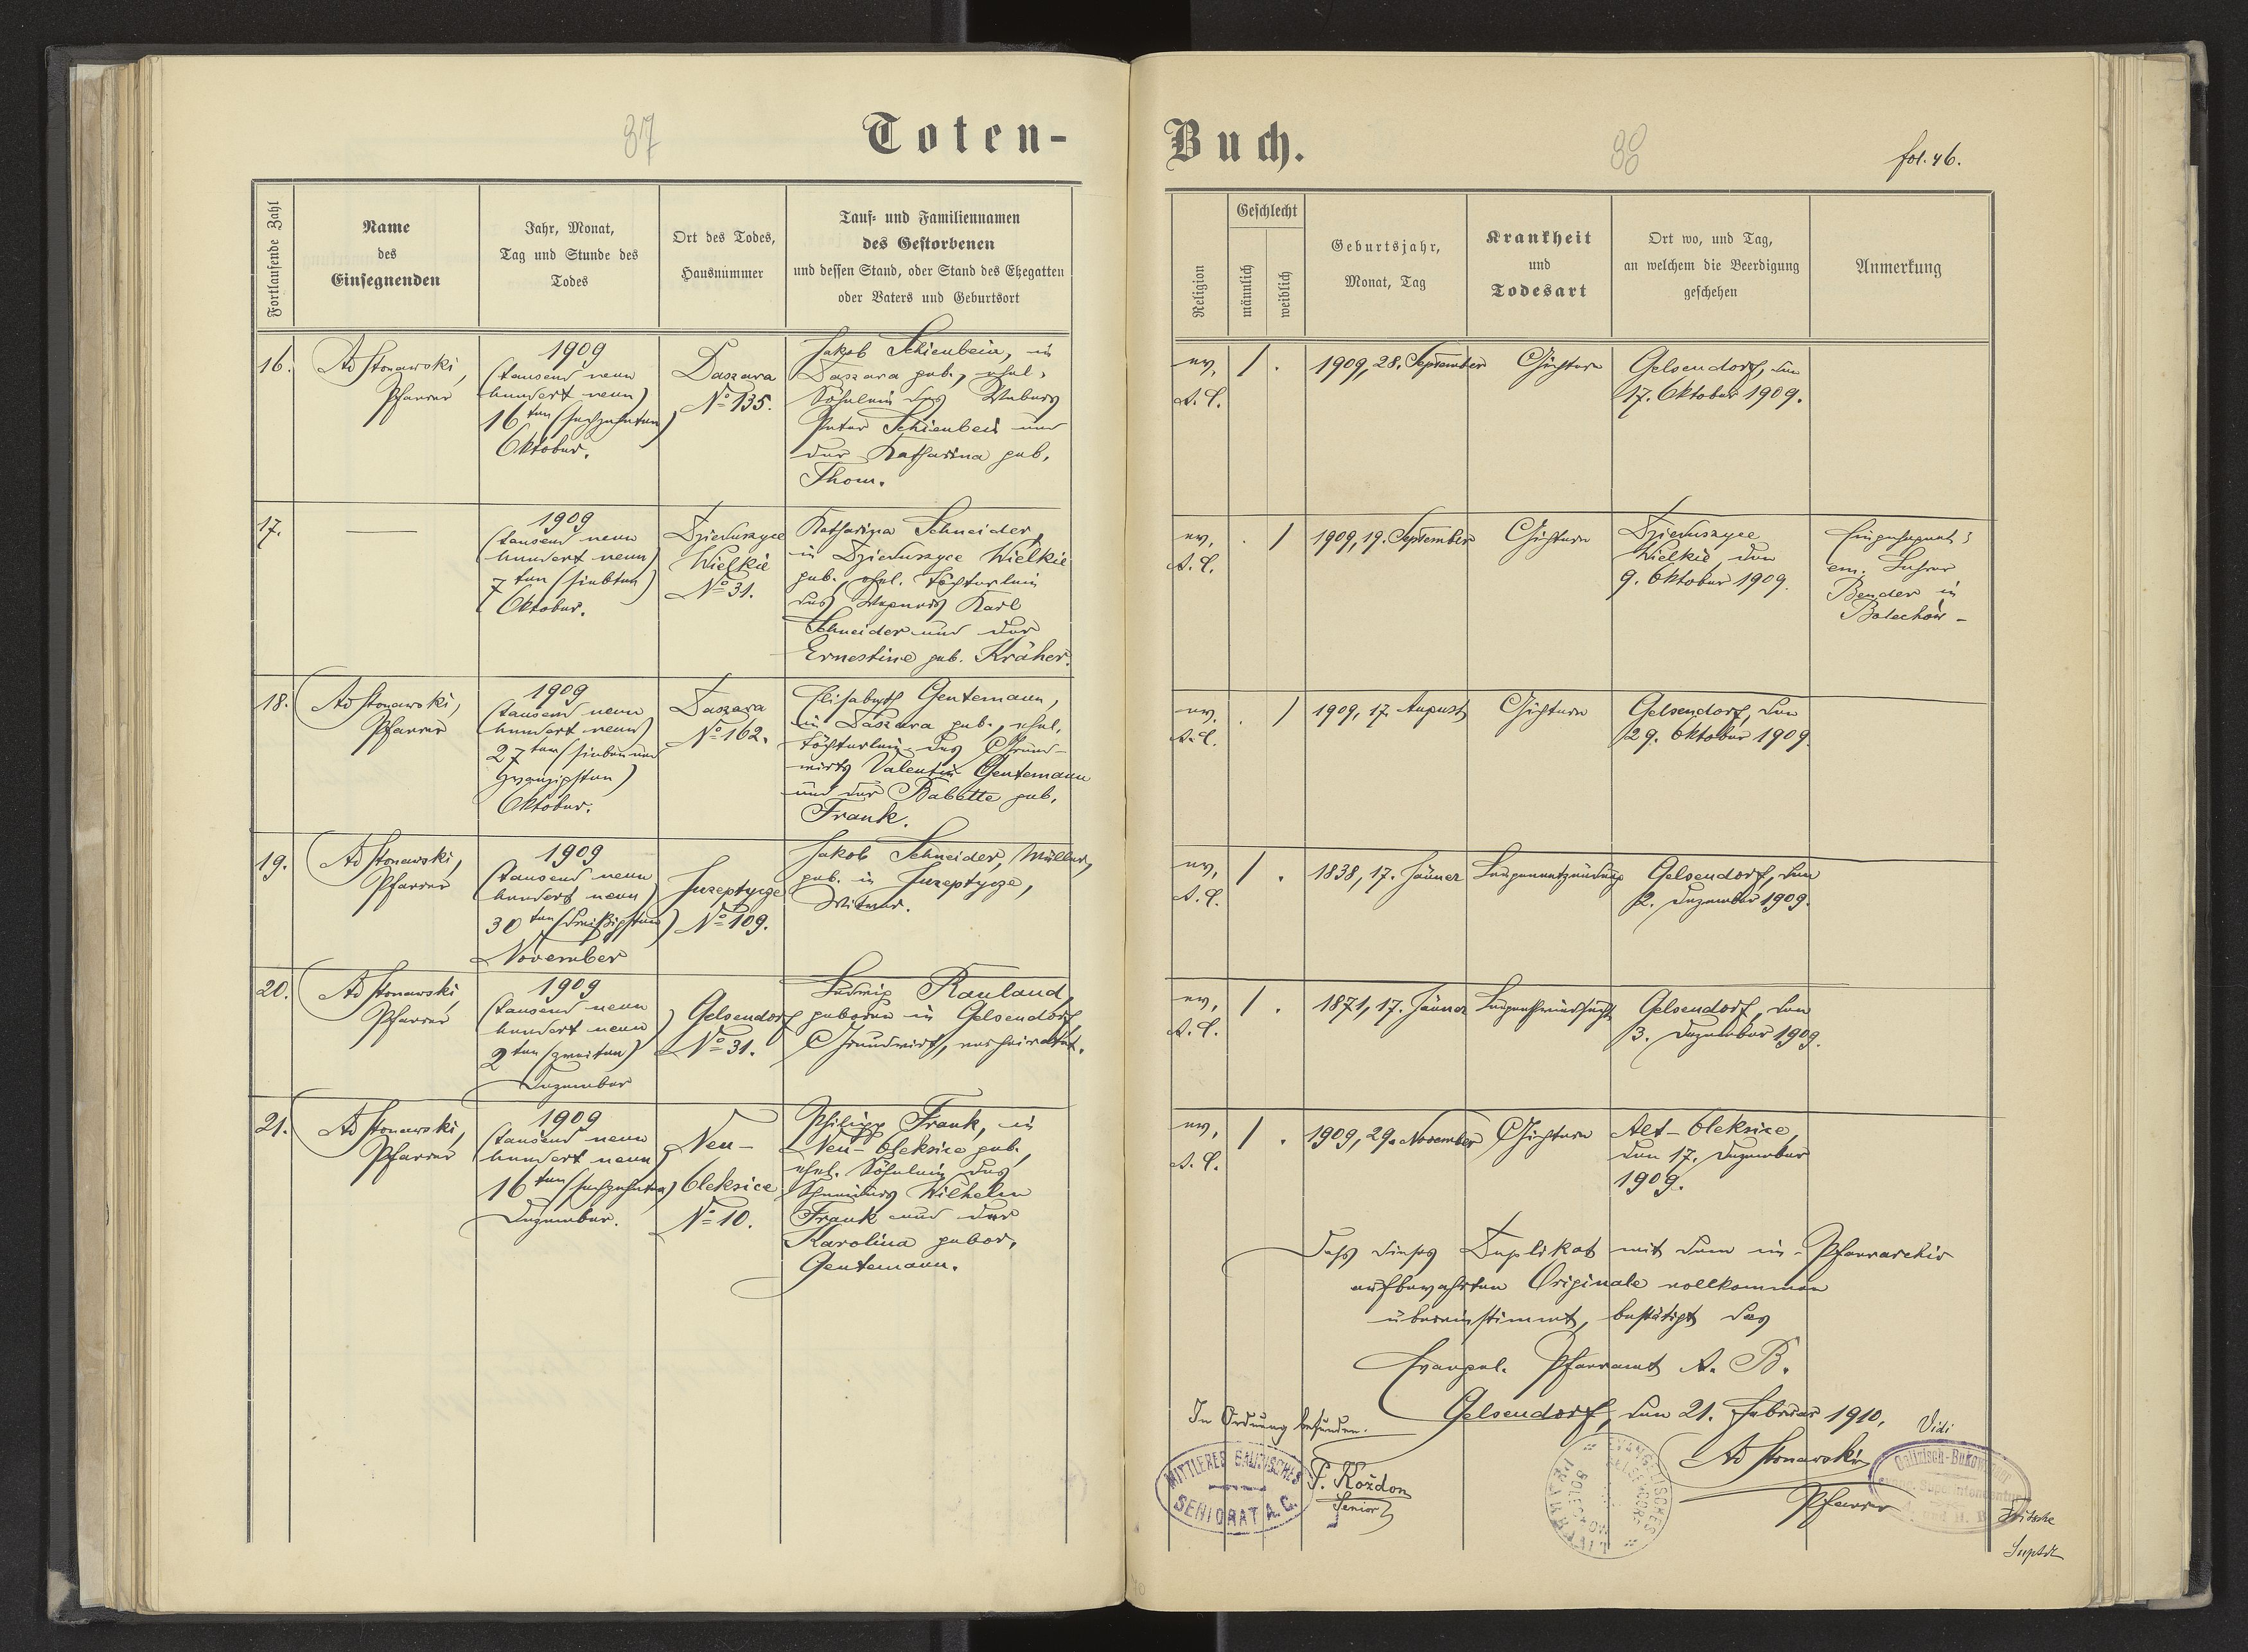 37
Toten-
Fortlaufende Zahl
Name
des
Einsegnenden
Jahr, Monat,
Tag und Stunde des
Todes
Ort des Todes,
Hausnummer
Tauf- und Familiennamen
des Gestorbenen
und dessen Stand, oder Stand des Ehegatten
oder Vaters und Geburtsort
16.
Ad Stonawski,
Pfarrer
1909
(tausend neun
hundert neun)
16ten (sechzehnten)
Oktober.
Daszawa
No 135.
Jakob Schienbein, in
Daszawa geb., ehel.
Söhnlein des Webers
Peter Schienbein und
der Katharina geb.
Thom.
17.
1909
(tausend neun
hundert neun)
7ten (siebten)
Oktober.
Dzieduszyce
Wielkie
No 31.
Katharina Schneider,
in Dzieduszyce Wielkie
geb., ehel. Töchterlein
des Wagners Karl
Schneider und der
Ernestine geb. Kräher.
18.
Ad Stonawski,
Pfarrer
1909
(tausend neun
hundert neun)
27ten (sieben und
zwanzigsten)
Oktober.
Daszawa
No 162.
Elisabeth Gentemann,
in Daszawa geb., ehel.
Töchterlein des Grund-
wirts Valentin Gentemann
und der Babette geb.
Frank.
19.
Ad Stonawski,
Pfarrer
1909
(tausend neun
hundert neun)
30ten (dreißigsten)
November
Juseptycze
No 109.
Jakob Schneider, Müller,
geb. in Juseptycze,
Witwer.
20.
Ad Stonawski
Pfarrer
1909
(tausend neun
hundert neun)
2ten (zweiten)
Dezember
Gelsendorf
No 31.
Ludwig Rauland,
geboren in Gelsendorf
Grundwirt, verheiratet.
21.
Ad Stonawski,
Pfarrer
1909
(tausend neun
hundert neun)
16ten (sechzehnten)
Dezember.
Neu-
Oleksice
No 10.
Philipp Frank, in
Neu-Oleksice geb.,
ehel. Söhnlein des
Schneiders Wilhelm
Frank und der
Karolina gebor.
Gentemann.
Buch.
38
fol. 46.
Religion
Geschlecht
männlich
weiblich
Geburtsjahr,
Monat, Tag
Krankheit
und
Todesart
Ort wo, und Tag,
an welchem die Beerdigung
geschehen
Anmerkung
ev.
A. C.
1 .
1909, 28. September
Gichtern
Gelsendorf, den
17. Oktober 1909.
ev.
A. C.
. 1
1909, 19. September
Gichtern
Dzieduszyce
Wielkie, den
9. Oktober 1909.
Eingesegnet:
em. Lehrer
Bender in
Bolechów -
ev.
A. C.
. 1
1909, 17. August
Gichtern
Gelsendorf, den
29. Oktober 1909.
ev.
A. C.
1 .
1838, 17. Jänner
Lungenentzündung
Gelsendorf, den
2. Dezember 1909.
ev.
A. C.
1 .
1871, 17. Jänner
Lungenschwindsucht
Gelsendorf, den
3. Dezember 1909.
ev.
A. C.
1 .
1909, 29. November
Gichtern
Alt-Oleksice,
den 17. Dezember
1909.
Daß dieses Duplikat mit dem im Pfarrarchiv
aufbewahrten Originale vollkommen
übereinstimmt, bestätigt das
Evangel. Pfarramt A. B.
Gelsendorf, den 21. Februar 1910.
In Ordnung befunden.
MITTLERES GALIZISCHES
SENIORAT A. C.
P. Kożdon
Senior
EVANGELISCHES
PFARRAMT
GELSENDORF
Ad Stonawski
Pfarrer
Vidi
Galizisch-Bukow
evang. Superintendentur
A. und H. B.
Fritsche
Suptdt